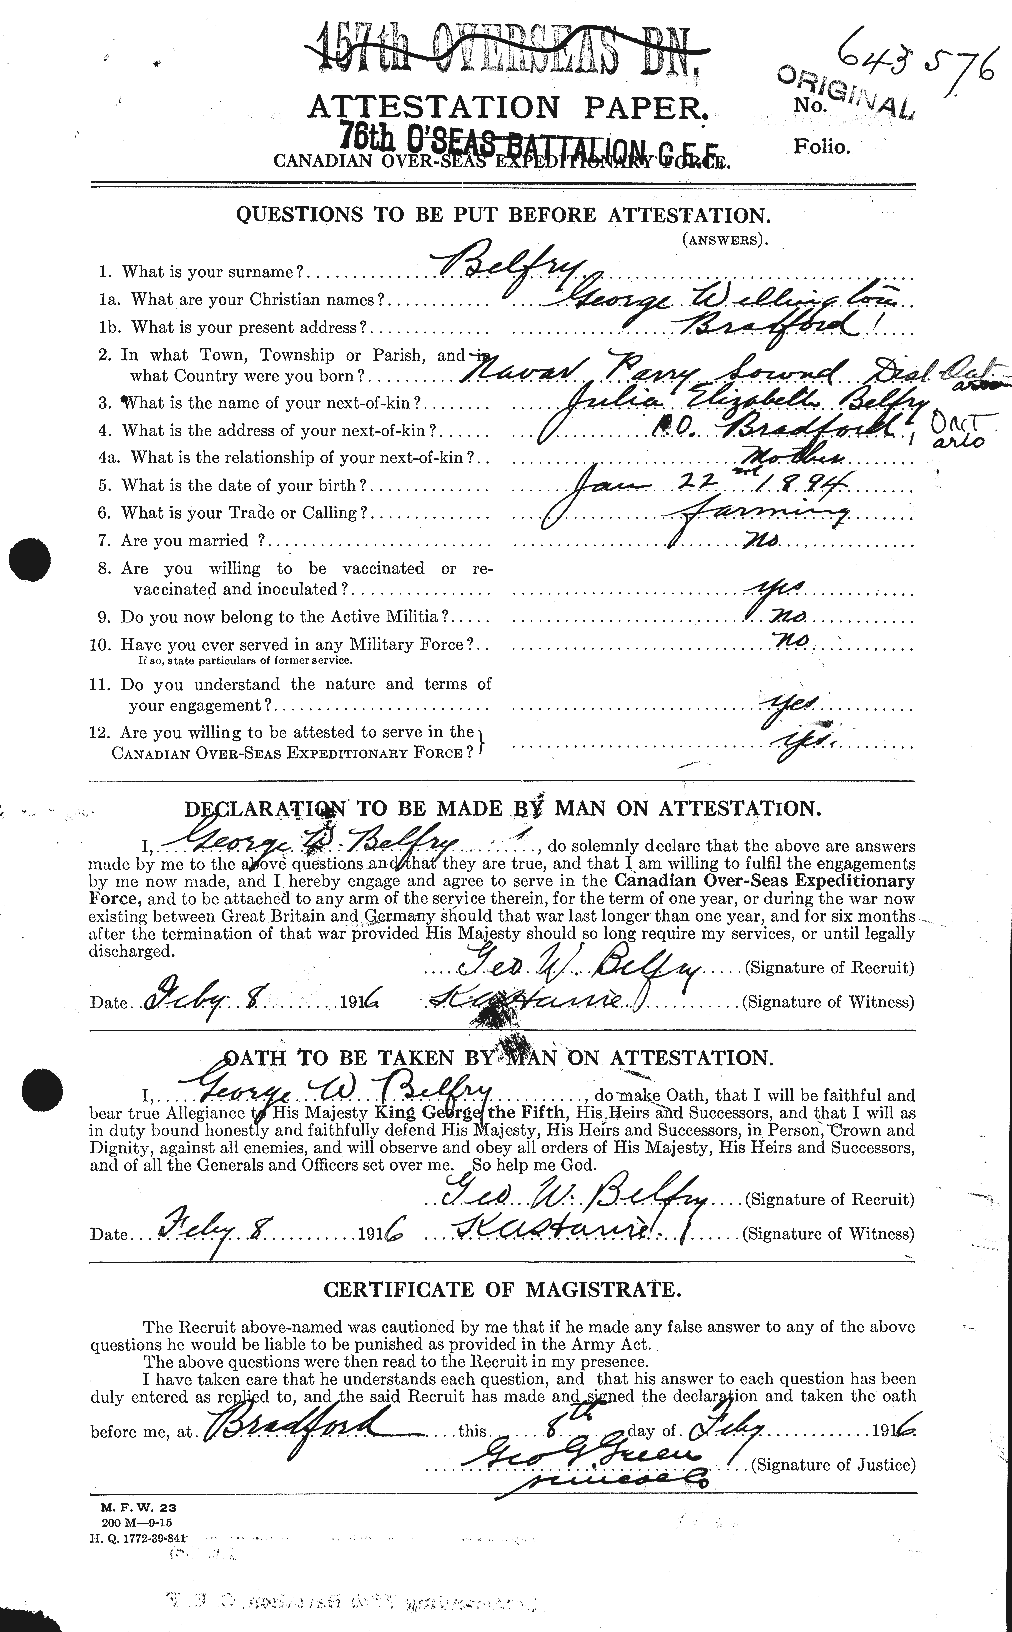 157th OVERSEAS BN.
643576
ORIGINAL
ATTESTATION PAPER.
No.
76th O'SEAS BATTALION C.E.F.
Folio.
CANADIAN OVER-SEAS EXPEDITIONARY FORCE.
QUESTIONS TO BE PUT BEFORE ATTESTATION.
(ANSWERS).
1. What is your surname? Belfry
1a. What are your Christian names? George Wellington
1b. What is your present address? Bradford
2. In what Town, Township or Parish, and in
what Country were you born? Navar Parry Sound Dist Ontario
3. What is the name of your next-of-kin? Julia Elizabeth Belfry
4. What is the address of your next-of-kin? P.O. Bradford Ontario
4a. What is the relationship of your next-of-kin? Mother
5. What is the date of your birth? Jan 22nd 1894
6. What is your Trade or Calling? farming
7. Are you married ? no
8. Are you willing to be vaccinated or re-
vaccinated and inoculated? yes
9. Do you now belong to the Active Militia? no
10. Have you ever served in any Military Force? no
If so, state particulars of former service.
11. Do you understand the nature and terms of
your engagement? yes
12. Are you willing to be attested to serve in the
CANADIAN OVER-SEAS EXPEDITIONARY FORCE? yes.
DECLARATION TO BE MADE BY MAN ON ATTESTATION.
I, George W Belfry, do solemnly declare that the above are answers
made by me to the above questions and that they are true, and that I am willing to fulfil the engagements
by me now made, and I hereby engage and agree to serve in the Canadian Over-Seas Expeditionary
Force, and to be attached to any arm of the service therein, for the term of one year, or during the war now
existing between Great Britain and Germany should that war last longer than one year, and for six months
after the termination of that war provided His Majesty should so long require my services, or until legally
discharged.
Geo W. Belfry (Signature of Recruit)
Date Feby 8 1916 (Signature of Witness)
OATH TO BE TAKEN BY MAN ON ATTESTATION.
I, George W Belfry, do make Oath, that I will be faithful and
bear true Allegiance to His Majesty King George the Fifth, His Heirs and Successors, and that I will as
in duty bound honestly and faithfully defend His Majesty, His Heirs and Successors, in Person, Crown and
Dignity, against all enemies, and will observe and obey all orders of His Majesty, His Heirs and Successors,
and of all the Generals and Officers set over me. So help me God.
Geo W. Belfry (Signature of Recruit)
Date Feby 8 1916 (Signature of Witness)
CERTIFICATE OF MAGISTRATE.
The Recruit above-named was cautioned by me that if he made any false answer to any of the above
questions he would be liable to be punished as provided in the Army Act.
The above questions were then read to the Recruit in my presence.
I have taken care that he understands each question, and that his answer to each question has been
duly entered as replied to, and the said Recruit has made and signed the declaration and taken the oath
before me, at Bradford this 8th day of Feby 1916
Geo G. Green (Signature of Justice)
Simcoe Co
M. F. W. 23
200 M—9-15
H. Q. 1772-39-841